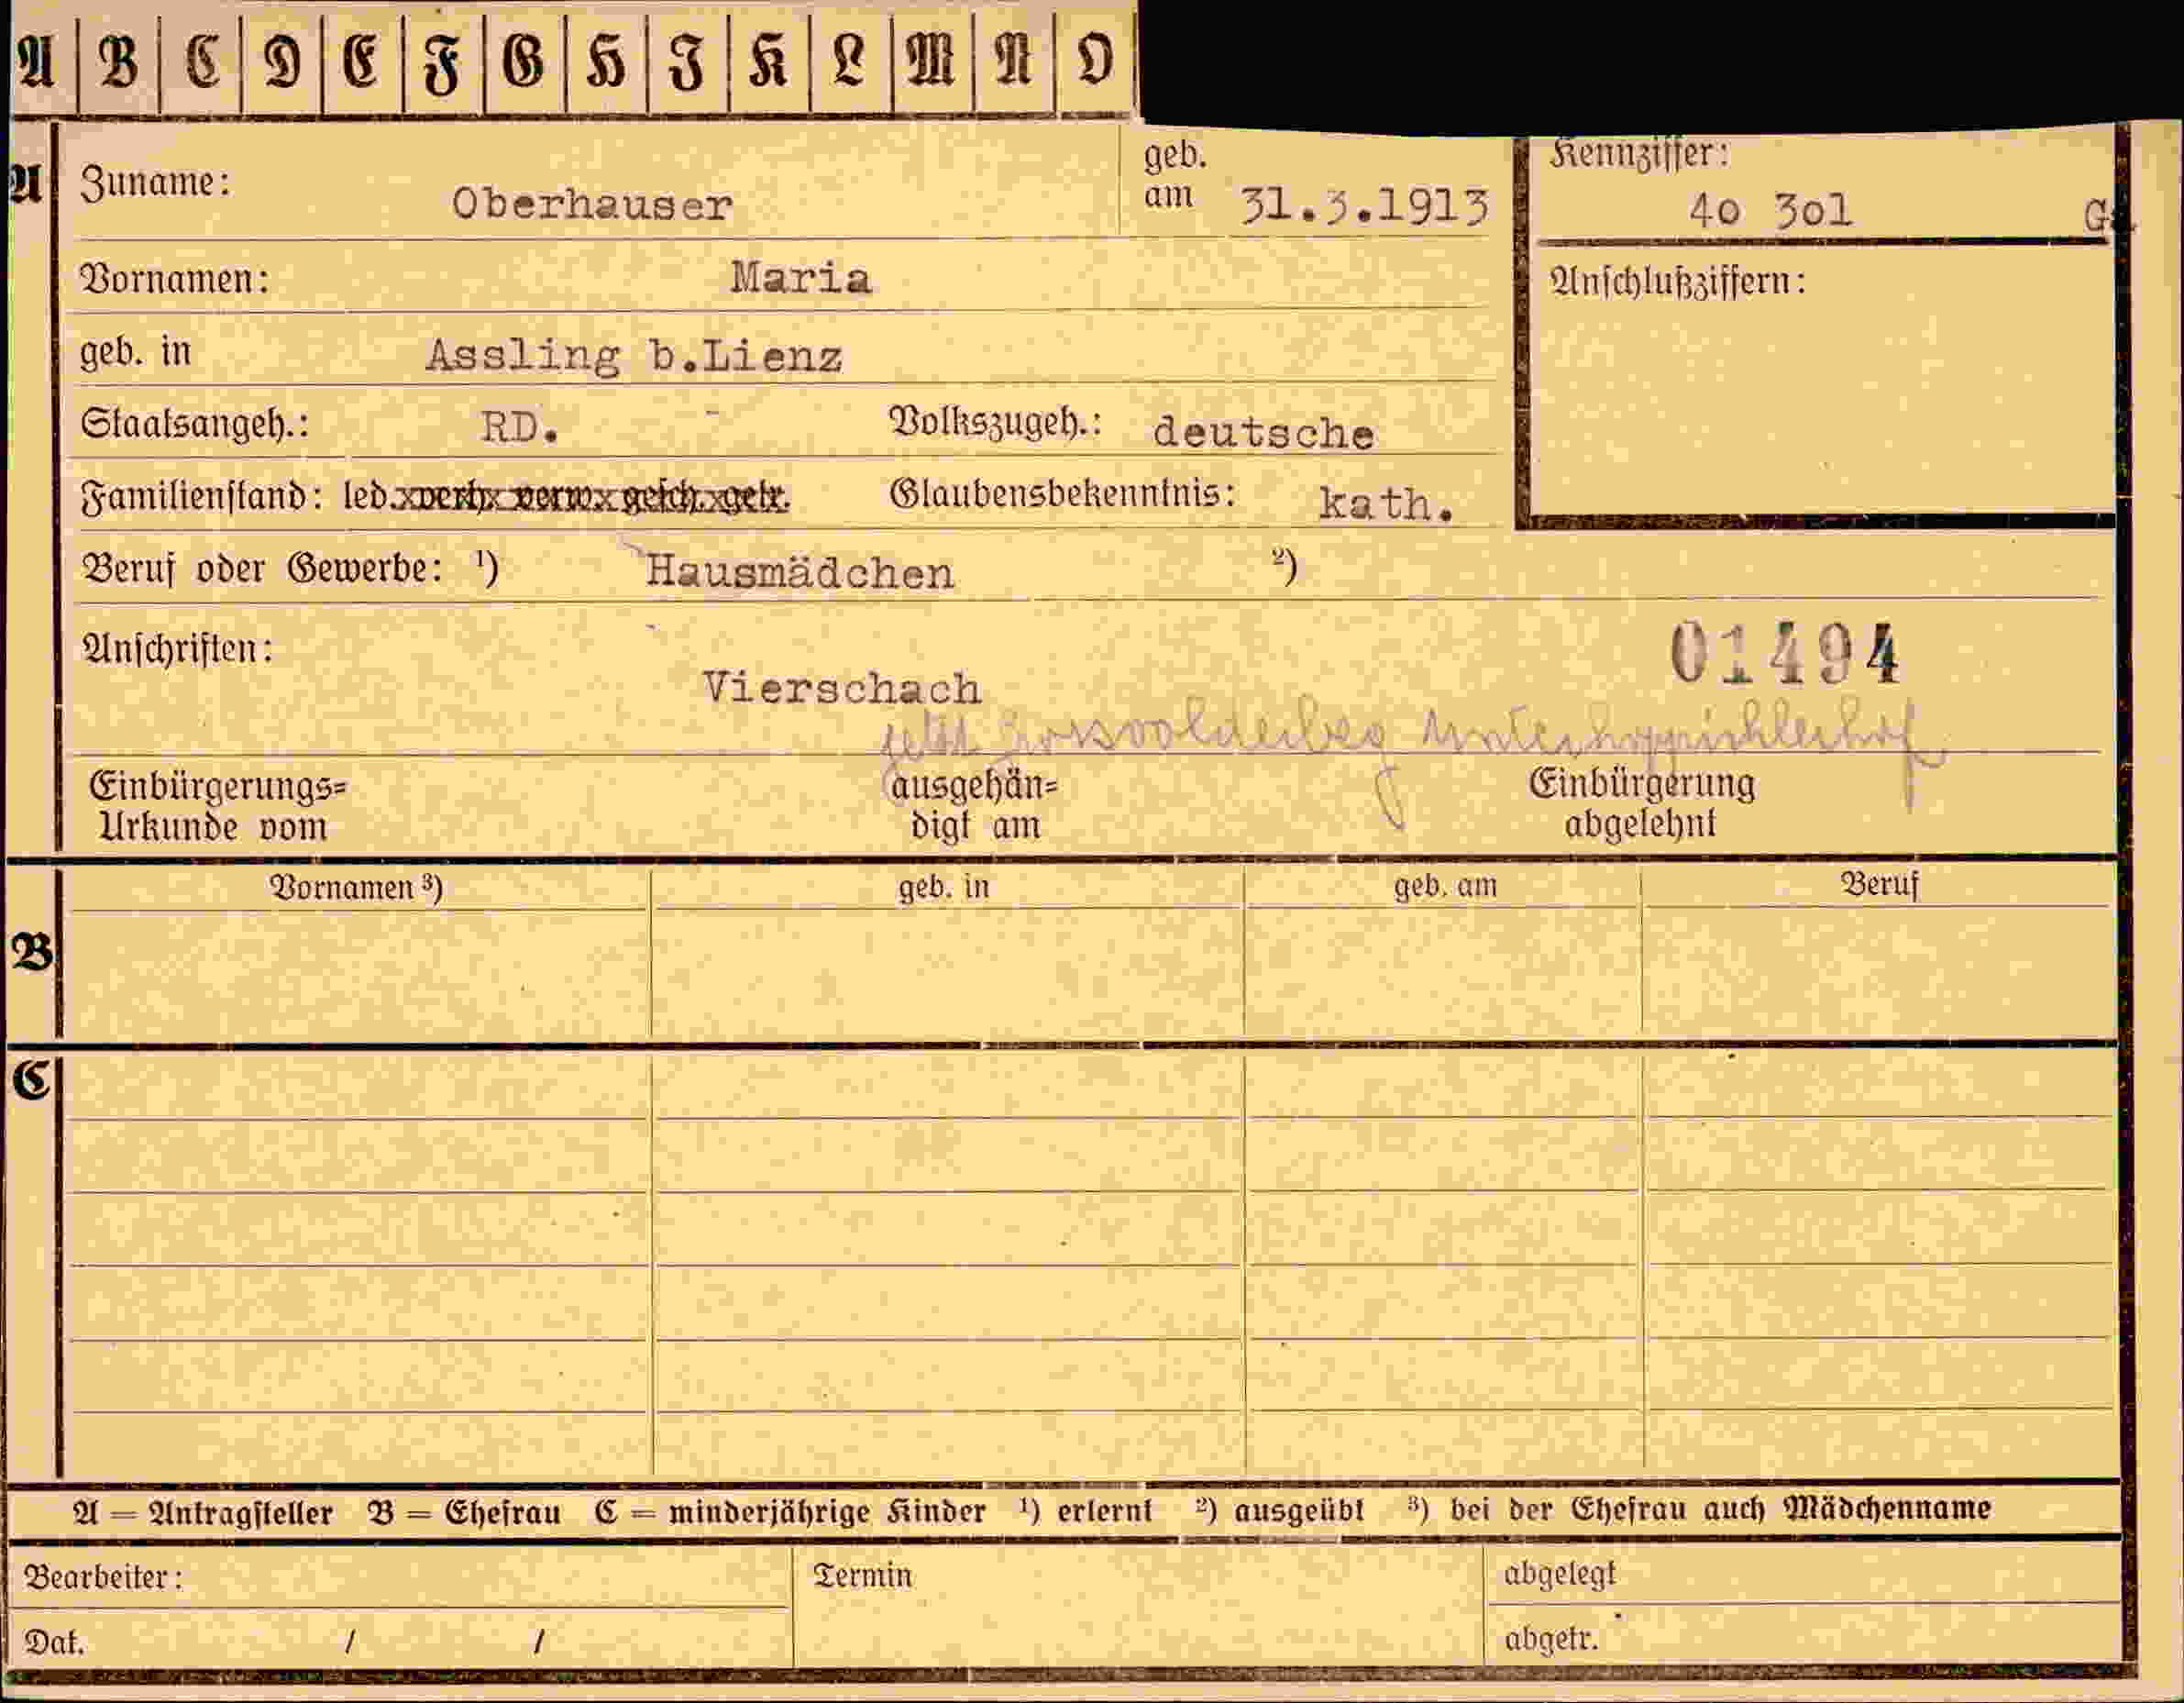 A B C D E F G H I K L M N O
A Zuname: Oberhauser geb. am 31.3.1913 Kennziffer: 4o 3o1 G
Vornamen: Maria Anschlußziffern:
geb. in Assling b.Lienz
Staatsangeh.: RD. - Volkszugeh.: deutsche
Familienstand: led. verh. verw. gesch. getr. Glaubensbekenntnis: kath.
Beruf oder Gewerbe: ¹) Hausmädchen ²)
Anschriften: 01494
Vierschach
jetzt
Einbürgerungs= ausgehän= Einbürgerung
Urkunde vom digt am abgelehnt
Vornamen ³) geb. in geb. am Beruf
B
C
A = Antragsteller B = Ehefrau C = minderjährige Kinder ¹) erlernt ²) ausgeübt ³) bei der Ehefrau auch Mädchenname
Bearbeiter: Termin abgelegt
Dat. / / abgetr.